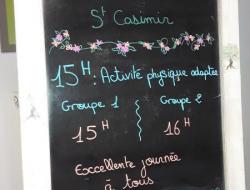 St Casimir
15H: Activité physique adaptée
Groupe 1 Groupe 2
15H 16H
Excellente journée
à tous